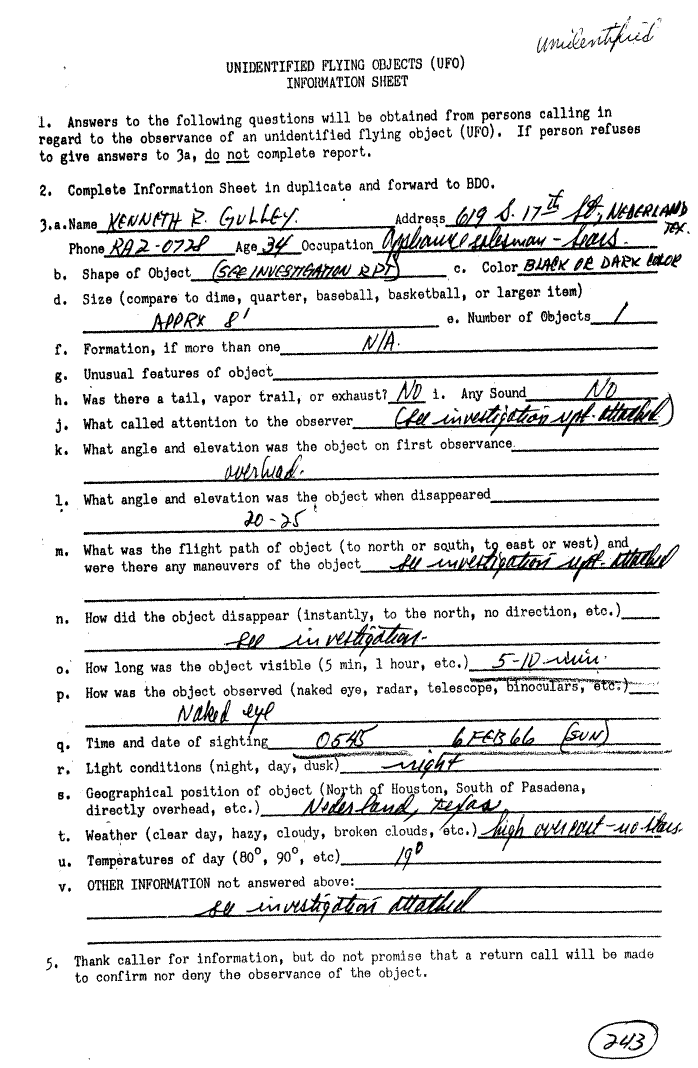 Unidentified
UNIDENTIFIED FLYING OBJECTS (UFO)
INFORMATION SHEET
1. Answers to the following questions will be obtained from persons calling in
regard to the observance of an unidentified flying object (UFO). If person refuses
to give answers to 3a, do not complete report.
2. Complete Information Sheet in duplicate and forward to BDO.
3.a. Name KENNETH R. GULLEY. Address 619 S. 17th St, NEDERLAND
TEX.
Phone RA2-0728 Age 34 Occupation Appliance salesman - Sears.
b. Shape of Object (SEE INVESTIGATION RPT) c. Color BLACK OR DARK COLOR
d. Size (compare to dime, quarter, baseball, basketball, or larger item)
APPRX 8' e. Number of Objects 1
f. Formation, if more than one N/A.
g. Unusual features of object
h. Was there a tail, vapor trail, or exhaust? NO i. Any Sound NO
j. What called attention to the observer (see investigation rpt. attached)
k. What angle and elevation was the object on first observance
overhead.
l. What angle and elevation was the object when disappeared
20-25
m. What was the flight path of object (to north or south, to east or west) and
were there any maneuvers of the object see investigation rpt. attached
n. How did the object disappear (instantly, to the north, no direction, etc.)
see investigation-
o. How long was the object visible (5 min, 1 hour, etc.) 5-10 min.
p. How was the object observed (naked eye, radar, telescope, binoculars, etc.)
Naked eye
q. Time and date of sighting 0545 6 FEB 66 (SUN)
r. Light conditions (night, day, dusk) night
s. Geographical position of object (North of Houston, South of Pasadena,
directly overhead, etc.) Nederland, Texas
t. Weather (clear day, hazy, cloudy, broken clouds, etc.) high overcast-no stars
u. Temperatures of day (80°, 90°, etc) 19°
v. OTHER INFORMATION not answered above:
see investigation attached
5. Thank caller for information, but do not promise that a return call will be made
to confirm nor deny the observance of the object.
243